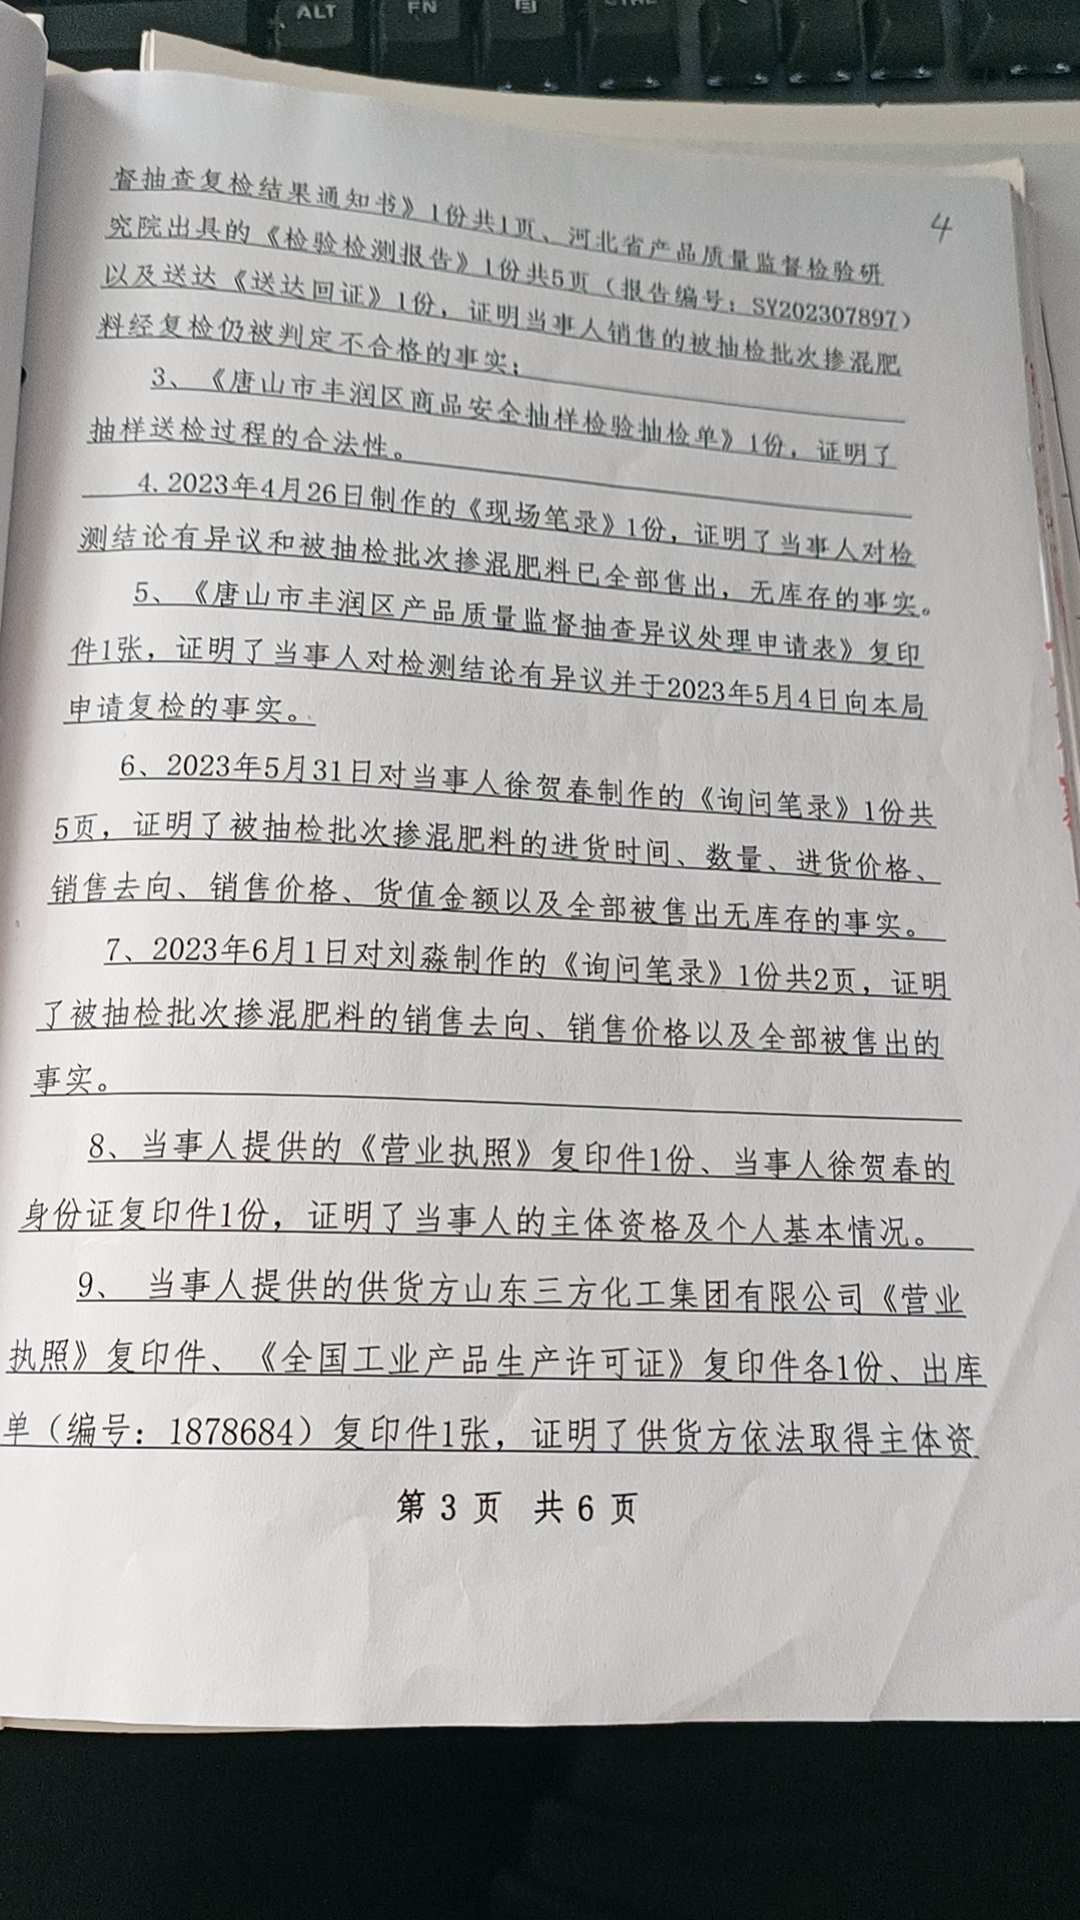 ALT
FN
4
督抽查复检结果通知书》1份共1页、河北省产品质量监督检验研
究院出具的《检验检测报告》1份共5页（报告编号：SY202307897）
以及送达《送达回证》1份，证明当事人销售的被抽检批次掺混肥
料经复检仍被判定不合格的事实；
3、《唐山市丰润区商品安全抽样检验抽检单》1份，证明了
抽样送检过程的合法性。
4.2023年4月26日制作的《现场笔录》1份，证明了当事人对检
测结论有异议和被抽检批次掺混肥料已全部售出，无库存的事实。
5、《唐山市丰润区产品质量监督抽查异议处理申请表》复印
件1张，证明了当事人对检测结论有异议并于2023年5月4日向本局
申请复检的事实。
6、2023年5月31日对当事人徐贺春制作的《询问笔录》1份共
5页，证明了被抽检批次掺混肥料的进货时间、数量、进货价格、
销售去向、销售价格、货值金额以及全部被售出无库存的事实。
7、2023年6月1日对刘淼制作的《询问笔录》1份共2页，证明
了被抽检批次掺混肥料的销售去向、销售价格以及全部被售出的
事实。
8、当事人提供的《营业执照》复印件1份、当事人徐贺春的
身份证复印件1份，证明了当事人的主体资格及个人基本情况。
9、 当事人提供的供货方山东三方化工集团有限公司《营业
执照》复印件、《全国工业产品生产许可证》复印件各1份、出库
单（编号：1878684）复印件1张，证明了供货方依法取得主体资
第 3 页 共 6 页